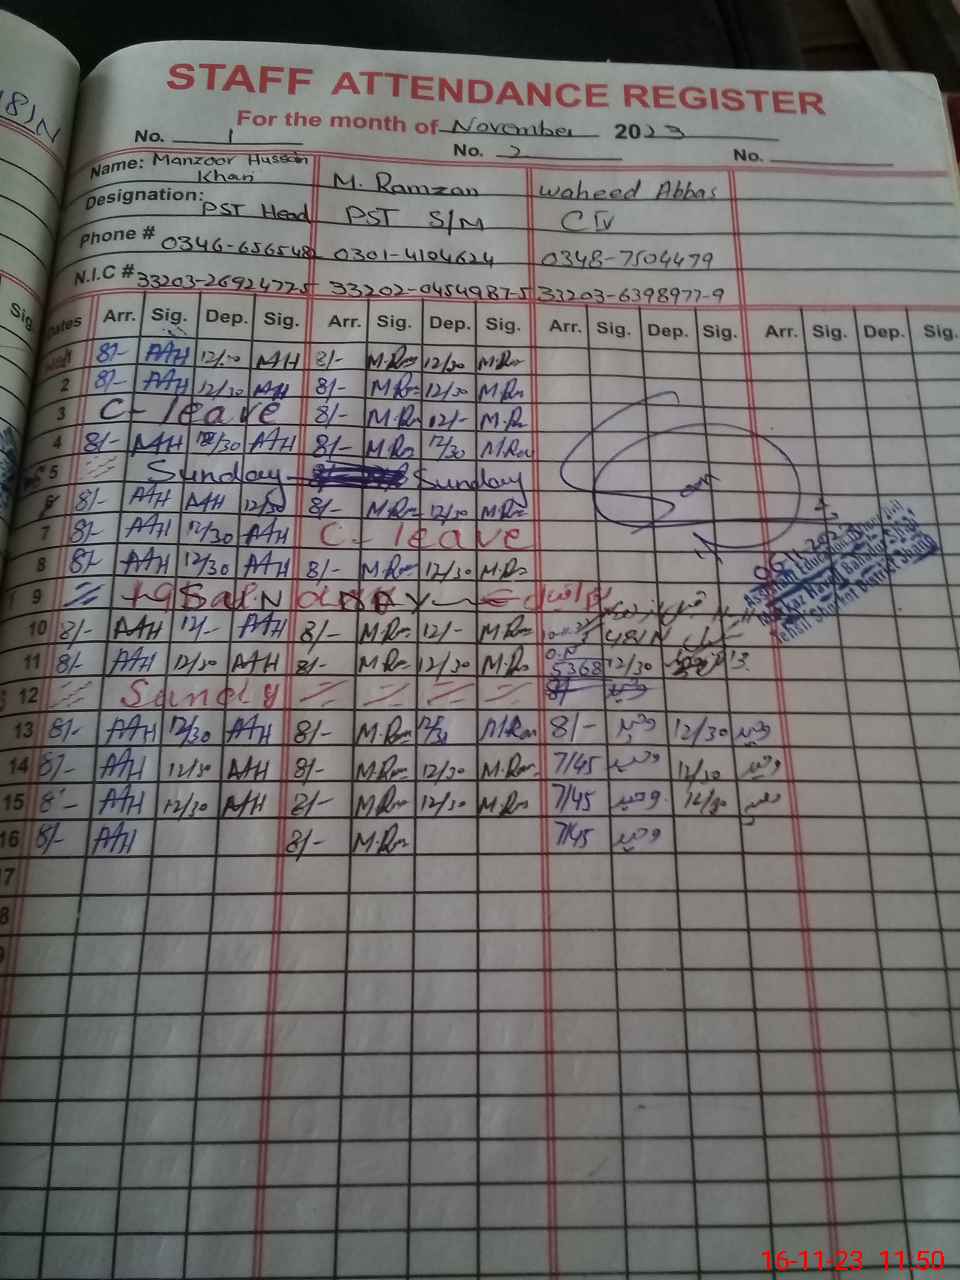 18)N
STAFF ATTENDANCE REGISTER
For the month of November 2023
No. 1 No. 2 No.
Name: Manzoor Hussain Khan M. Ramzan Waheed Abbas
Designation: PST Head PST S/M
Phone # 0346-656548 0301-4104624 0348-7504479
N.I.C # 33203-2692472-5 33202-0454987-5 33203-6398977-9
Sig. Dates Arr. Sig. Dep. Sig. Arr. Sig. Dep. Sig. Arr. Sig. Dep. Sig. Arr. Sig. Dep. Sig.
8/- AAH 12/30 AAH 8/- M.Ram 12/30 M.Ram
2 8/- AAH 12/30 AAH 8/- M.Ram 12/30 M.Ram
3 C-leave 8/- M.Ram 12/- M.Ram
4 8/- AAH 12/30 AAH 8/- M.Ram 12/30 M.Ram
5 Sunday Sunday
6 8/- AAH AAH 12/30 8/- M.Ram 12/30 M.Ram
7 8/- AAH 12/30 AAH C-leave
8 8/- AAH 12/30 AAH 8/- M.Ram 12/30 M.Ram
9 DAY
10 8/- AAH 12/- AAH 8/- M.Ram 12/- M.Ram 481)N
11 8/- AAH 12/30 AAH 8/- M.Ram 12/30 M.Ram 5368 12/30
12 Sundy 8/-
13 8/- AAH 12/30 AAH 8/- M.Ram 12/30 M.Ram 8/- وحید 12/30 وحید
14 8/- AAH 12/30 AAH 8/- M.Ram 12/30 M.Ram 7/45 وحید 12/30 وحید
15 8/- AAH 12/30 AAH 8/- M.Ram 12/30 M.Ram 7/45 وحید 12/30 وحید
16 8/- AAH 8/- M.Ram 7/45 وحید
Tehsil Shorkot District Jhang
16-11-23 11:50